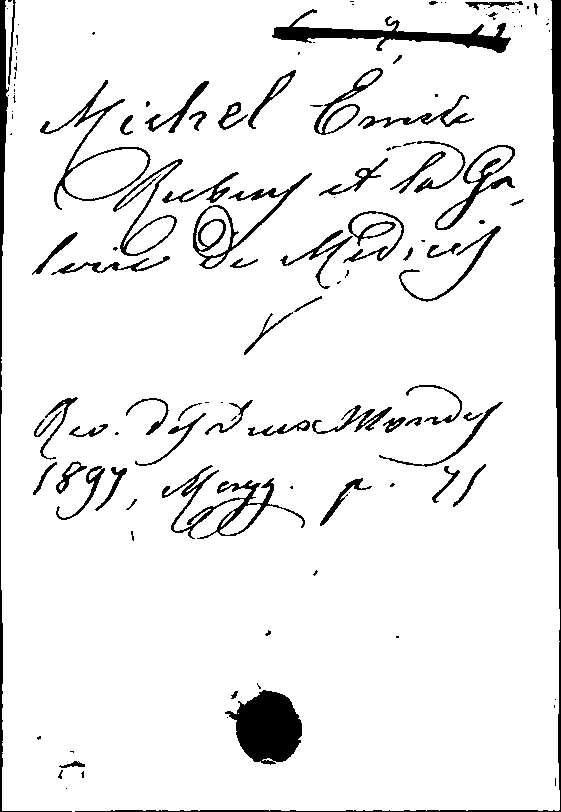 Michel Emile
Rubens et la Ga-
lerie de Medicis
Rev. des Deux Mondes
1897, p. 71